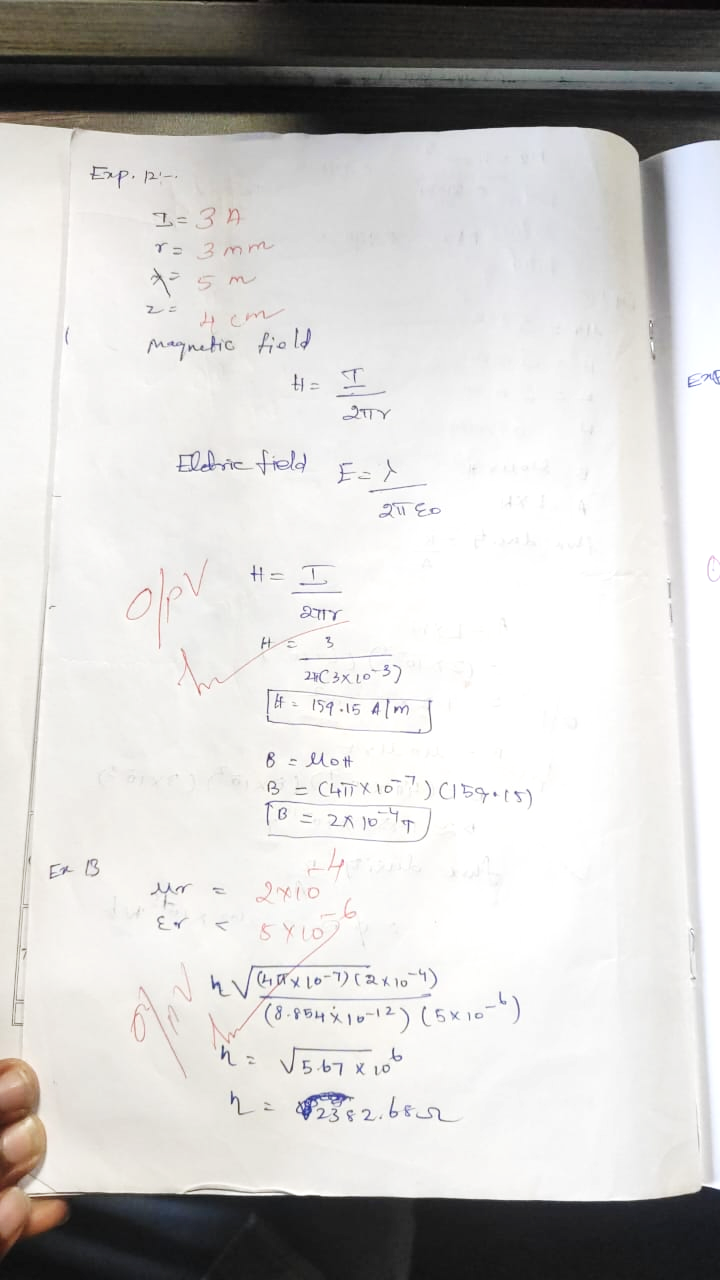 Exp. 12:-
I = 3 A
r = 3 mm
λ = 5 m
z = 4 cm
Magnetic field
H = I
2πr
Eldric field E = λ
2π ε0
O/pV
H = I
2πr
H = 3
2π(3×10-3)
H = 159.15 A/m
B = μ0H
B = (4π×10-7) (159.15)
B = 2×10-4T
Ex 13
μr = 2×10-4
εr = 5×10-6
O/pV
η √(4π×10-7)(2×10-4)
(8.854×10-12) (5×10-6)
η = √5.67×10 6
η = 2382.68Ω